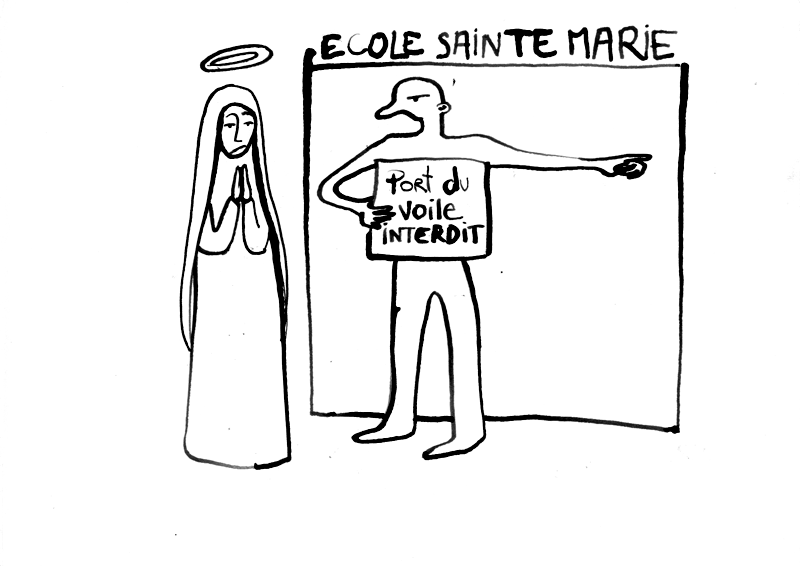 ECOLE SAINTE MARIE
Port du
voile
INTERDIT